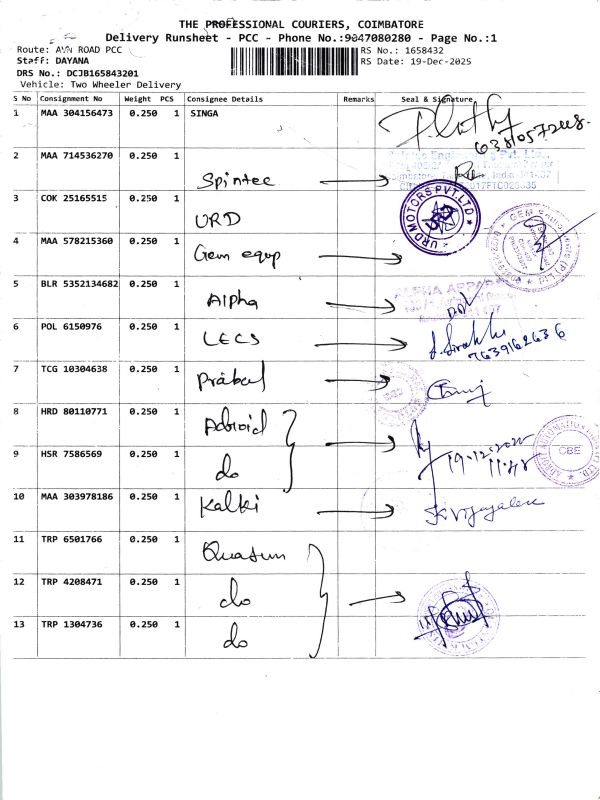 THE PROFESSIONAL COURIERS, COIMBATORE
Delivery Runsheet - PCC - Phone No.:9047080280 - Page No.:1
Route: AVN ROAD PCC
RS No.: 1658432
Staff: DAYANA
RS Date: 19-Dec-2025
DRS No.: DCJB165843201
Vehicle: Two Wheeler Delivery
S No Consignment No Weight PCS Consignee Details Remarks Seal & Signature
1 MAA 304156473 0.250 1 SINGA
2 MAA 714536270 0.250 1 Spintec
3 COK 25165515 0.250 1 URD
URO MOTORS PVT. LTD
4 MAA 578215360 0.250 1 Gem eqvp
5 BLR 5352134682 0.250 1 Alpha
6 POL 6150976 0.250 1 LECS
7639162636
7 TCG 10304638 0.250 1 Prabal
8 HRD 80110771 0.250 1 Adroid
19-12-2025
11:48
9 HSR 7586569 0.250 1 do
CBE
10 MAA 303978186 0.250 1 Kalki
11 TRP 6501766 0.250 1 Quatum
12 TRP 4208471 0.250 1 do
13 TRP 1304736 0.250 1 do